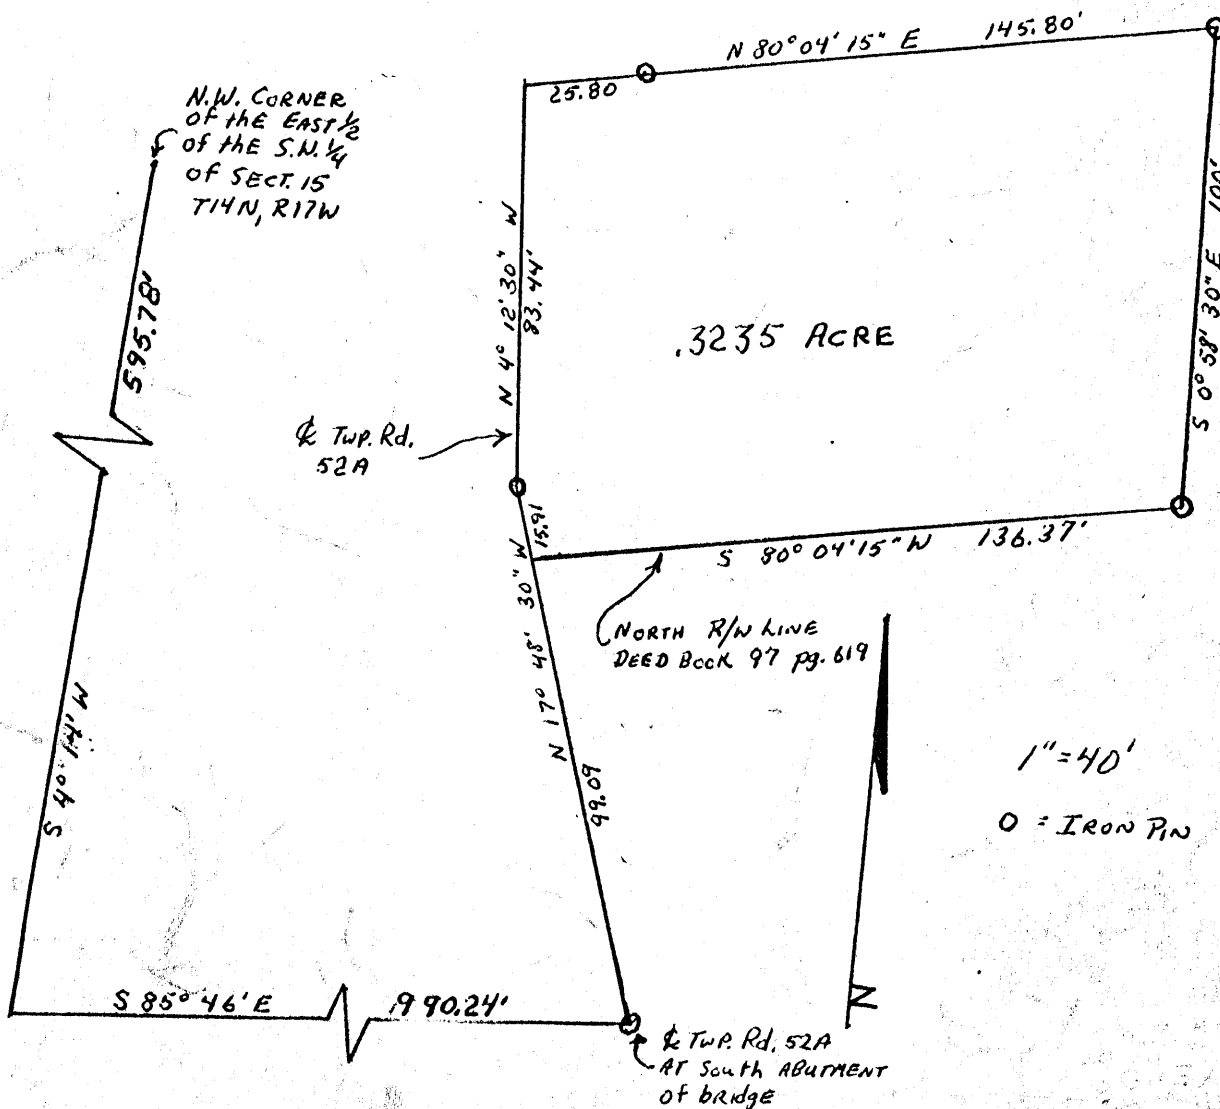 N 80° 04' 15" E 145.80'
25.80
N.W. CORNER
OF thE EAST 1/2
OF thE S.W. 1/4
OF SECT. 15
T14N, R17W
595.78'
N 4° 12' 30" W
83.44'
S 0° 58' 30" E 100'
.3235 ACRE
℄ Twp. Rd.
52A
15.91
S 80° 04' 15" W 136.37'
NORTH R/W LINE
DEED BOOK 97 pg. 619
N 17° 48' 30" W
99.09
S 4° 14' W
1" = 40'
O = IRON PIN
N
S 85° 46' E 990.24'
℄ TWP. Rd. 52A
AT South ABUTMENT
of bridge